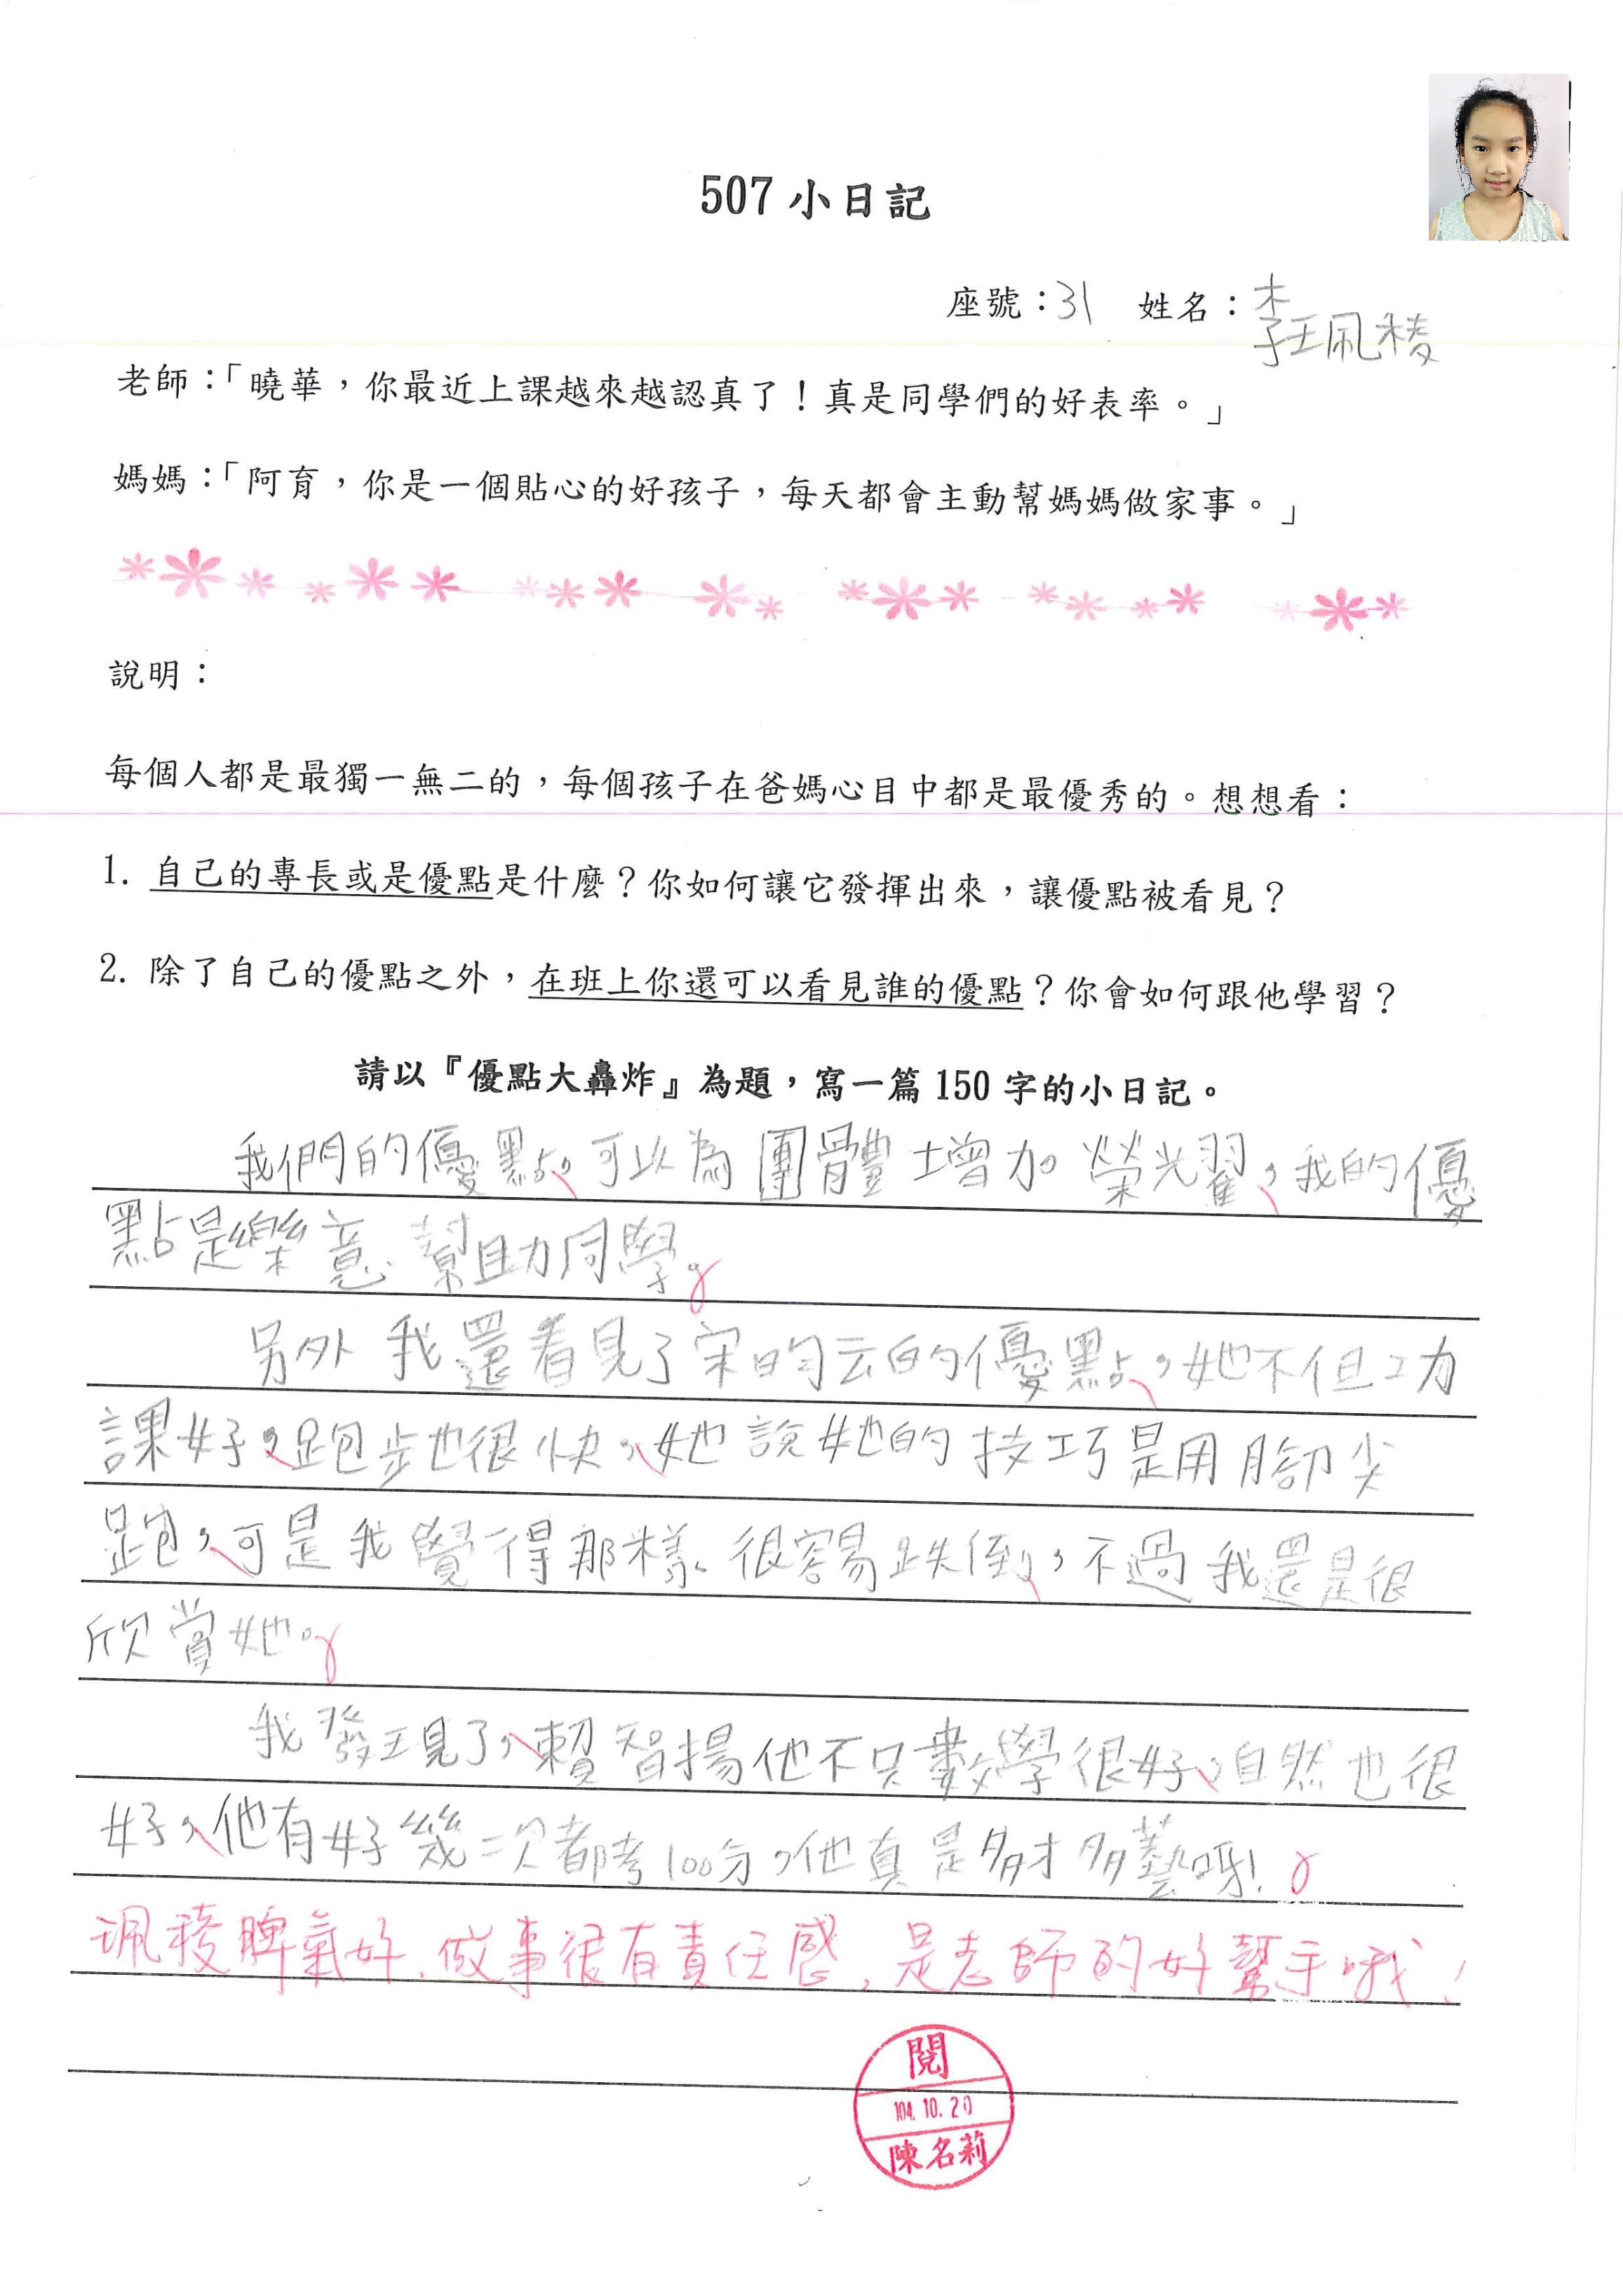 507 小日記
座號：31 姓名：李珮稜
老師：「曉華，你最近上課越來越認真了！真是同學們的好表率。」
媽媽：「阿育，你是一個貼心的好孩子，每天都會主動幫媽媽做家事。」
說明：
每個人都是最獨一無二的，每個孩子在爸媽心目中都是最優秀的。想想看：
1. 自己的專長或是優點是什麼？你如何讓它發揮出來，讓優點被看見？
2. 除了自己的優點之外，在班上你還可以看見誰的優點？你會如何跟他學習？
請以『優點大轟炸』為題，寫一篇 150 字的小日記。
我們的優點，可以為團體增加榮光耀，我的優
點是樂意幫助同學。
另外我還看見了宋昀云的優點，她不但功
課好，跑步也很快，她說她的技巧是用腳尖
跑，可是我覺得那樣很容易跌倒，不過我還是很
欣賞她。
我發現了，賴智揚他不只數學很好，自然也很
好，他有好幾次都考100分，他真是多才多藝呀！
珮稜脾氣好、做事很有責任感，是老師的好幫手哦！
閱
104.10.20
陳名莉